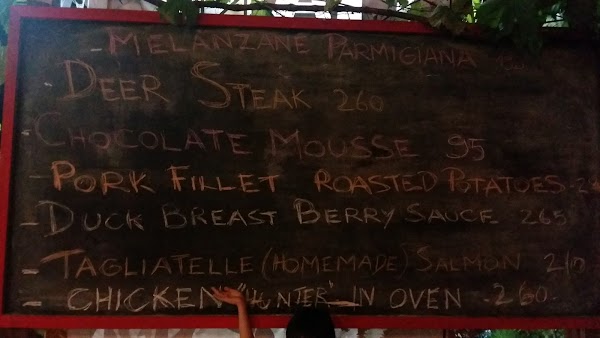 - MELANZANE PARMIGIANA
- DEER STEAK 260
- CHOCOLATE MOUSSE 95
- PORK FILLET ROASTED POTATOES -
- DUCK BREAST BERRY SAUCE 265
- TAGLIATELLE (HOMEMADE) SALMON
- CHICKEN "HUNTER" IN OVEN -260